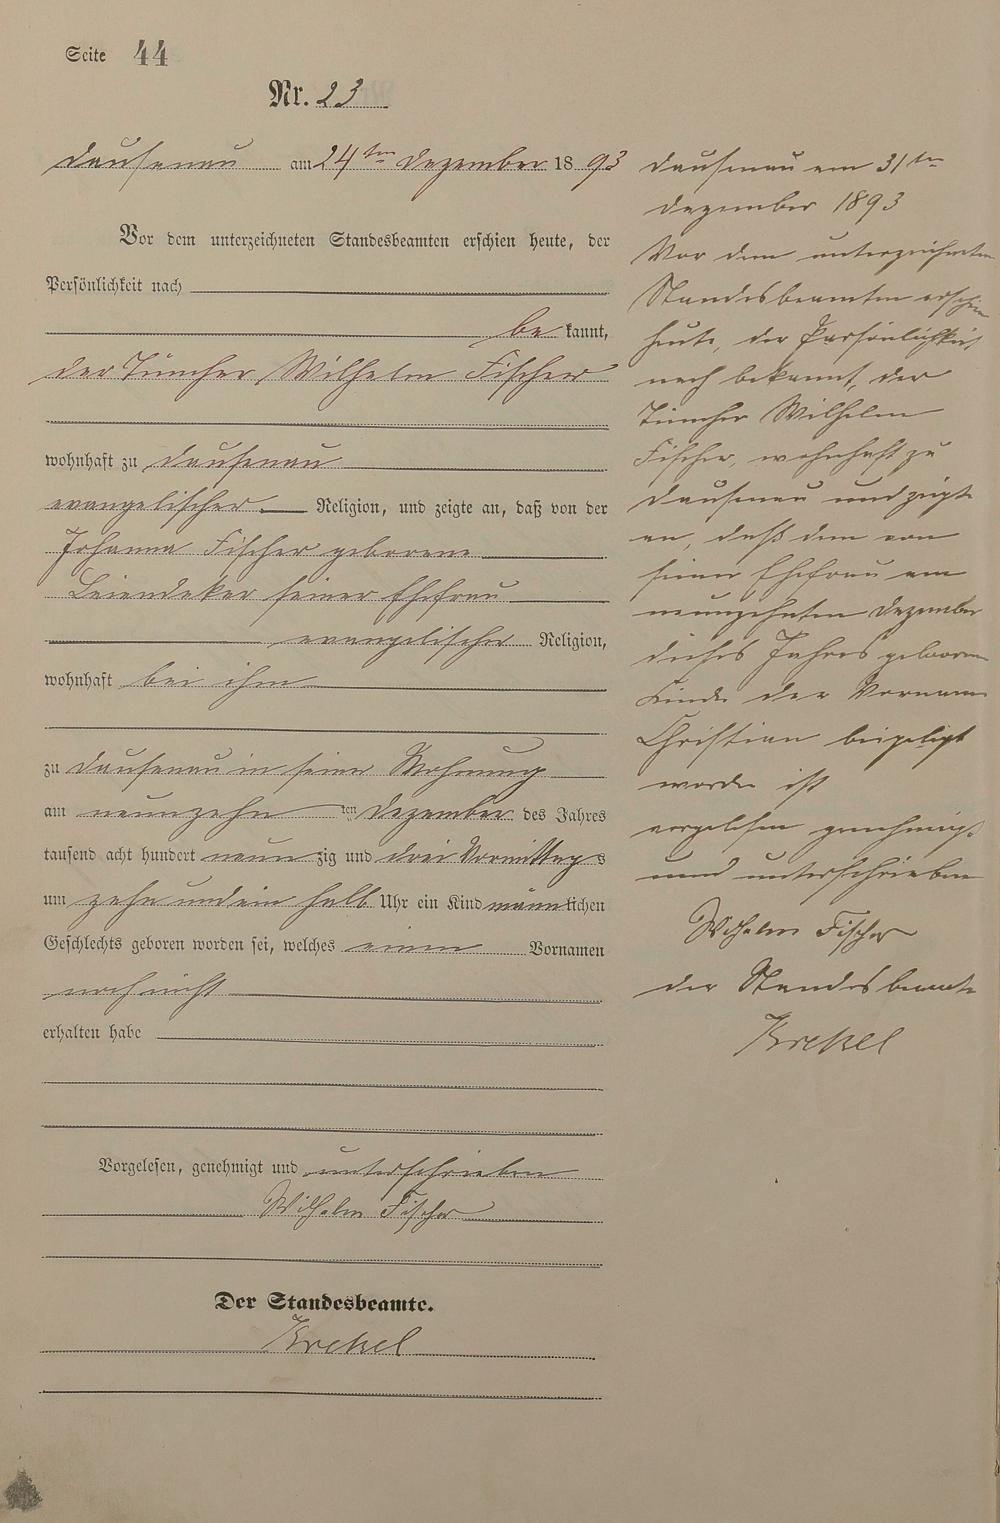 Seite 44
Nr. 23
Dausenau am 24ten Dezember 1893
Vor dem unterzeichneten Standesbeamten erschien heute, der
Persönlichkeit nach
bekannt,
der Tüncher Wilhelm Fischer
wohnhaft zu Dausenau
evangelischer Religion, und zeigte an, daß von der
Johanna Fischer geborene
Leiendeker seiner Ehefrau
evangelischer Religion,
wohnhaft bei ihm
zu Dausenau in seiner Wohnung
am neunzehn ten Dezember des Jahres
tausend acht hundert neunzig und drei Vormittags
um zehn und ein halb Uhr ein Kind männlichen
Geschlechts geboren worden sei, welches einen Vornamen
noch nicht
erhalten habe
Vorgelesen, genehmigt und unterschrieben
Wilhelm Fischer
Der Standesbeamte.
Krekel
Dausenau am 31ten
Dezember 1893
Vor dem unterzeichneten
Standesbeamten erschien
heute, der Persönlichkeit
nach bekannt, der
Tüncher Wilhelm
Fischer, wohnhaft zu
Dausenau und zeigte
an, daß dem von
seiner Ehefrau am
neunzehnten Dezember
dieses Jahres geborenen
Kinde der Vorname
Christian beigelegt
worden ist
vorgelesen genehmigt
und unterschrieben
Wilhelm Fischer
der Standesbeamte
Krekel